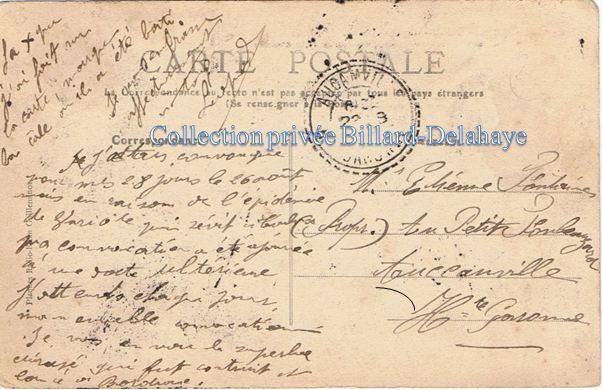 La + que
j'ai fait sur
la carte marque
la cale où il a été bâti
Je vous embrasse
affectueusement
CARTE POSTALE
La Correspondance au recto n'est pas acceptée par tous les pays étrangers
(Se renseigner à la Poste)
AUCAMVILLE
Collection privée Billard-Delahaye
Correspondance
Je j'étais convoqué
pour mes 28 jours le 26 août
mais en raison de l'épidémie
de variole qui sévit à Toulon
ma convocation a été ajournée
à une date ultérieure
J'attends chaque jour
ma nouvelle convocation
Je vous envoie le superbe
cuirassé qui fut construit et
lancé à Bordeaux.
Mr Etienne Fontaines
(Propr.) Au Petit
Auccamville
Hte Garonne